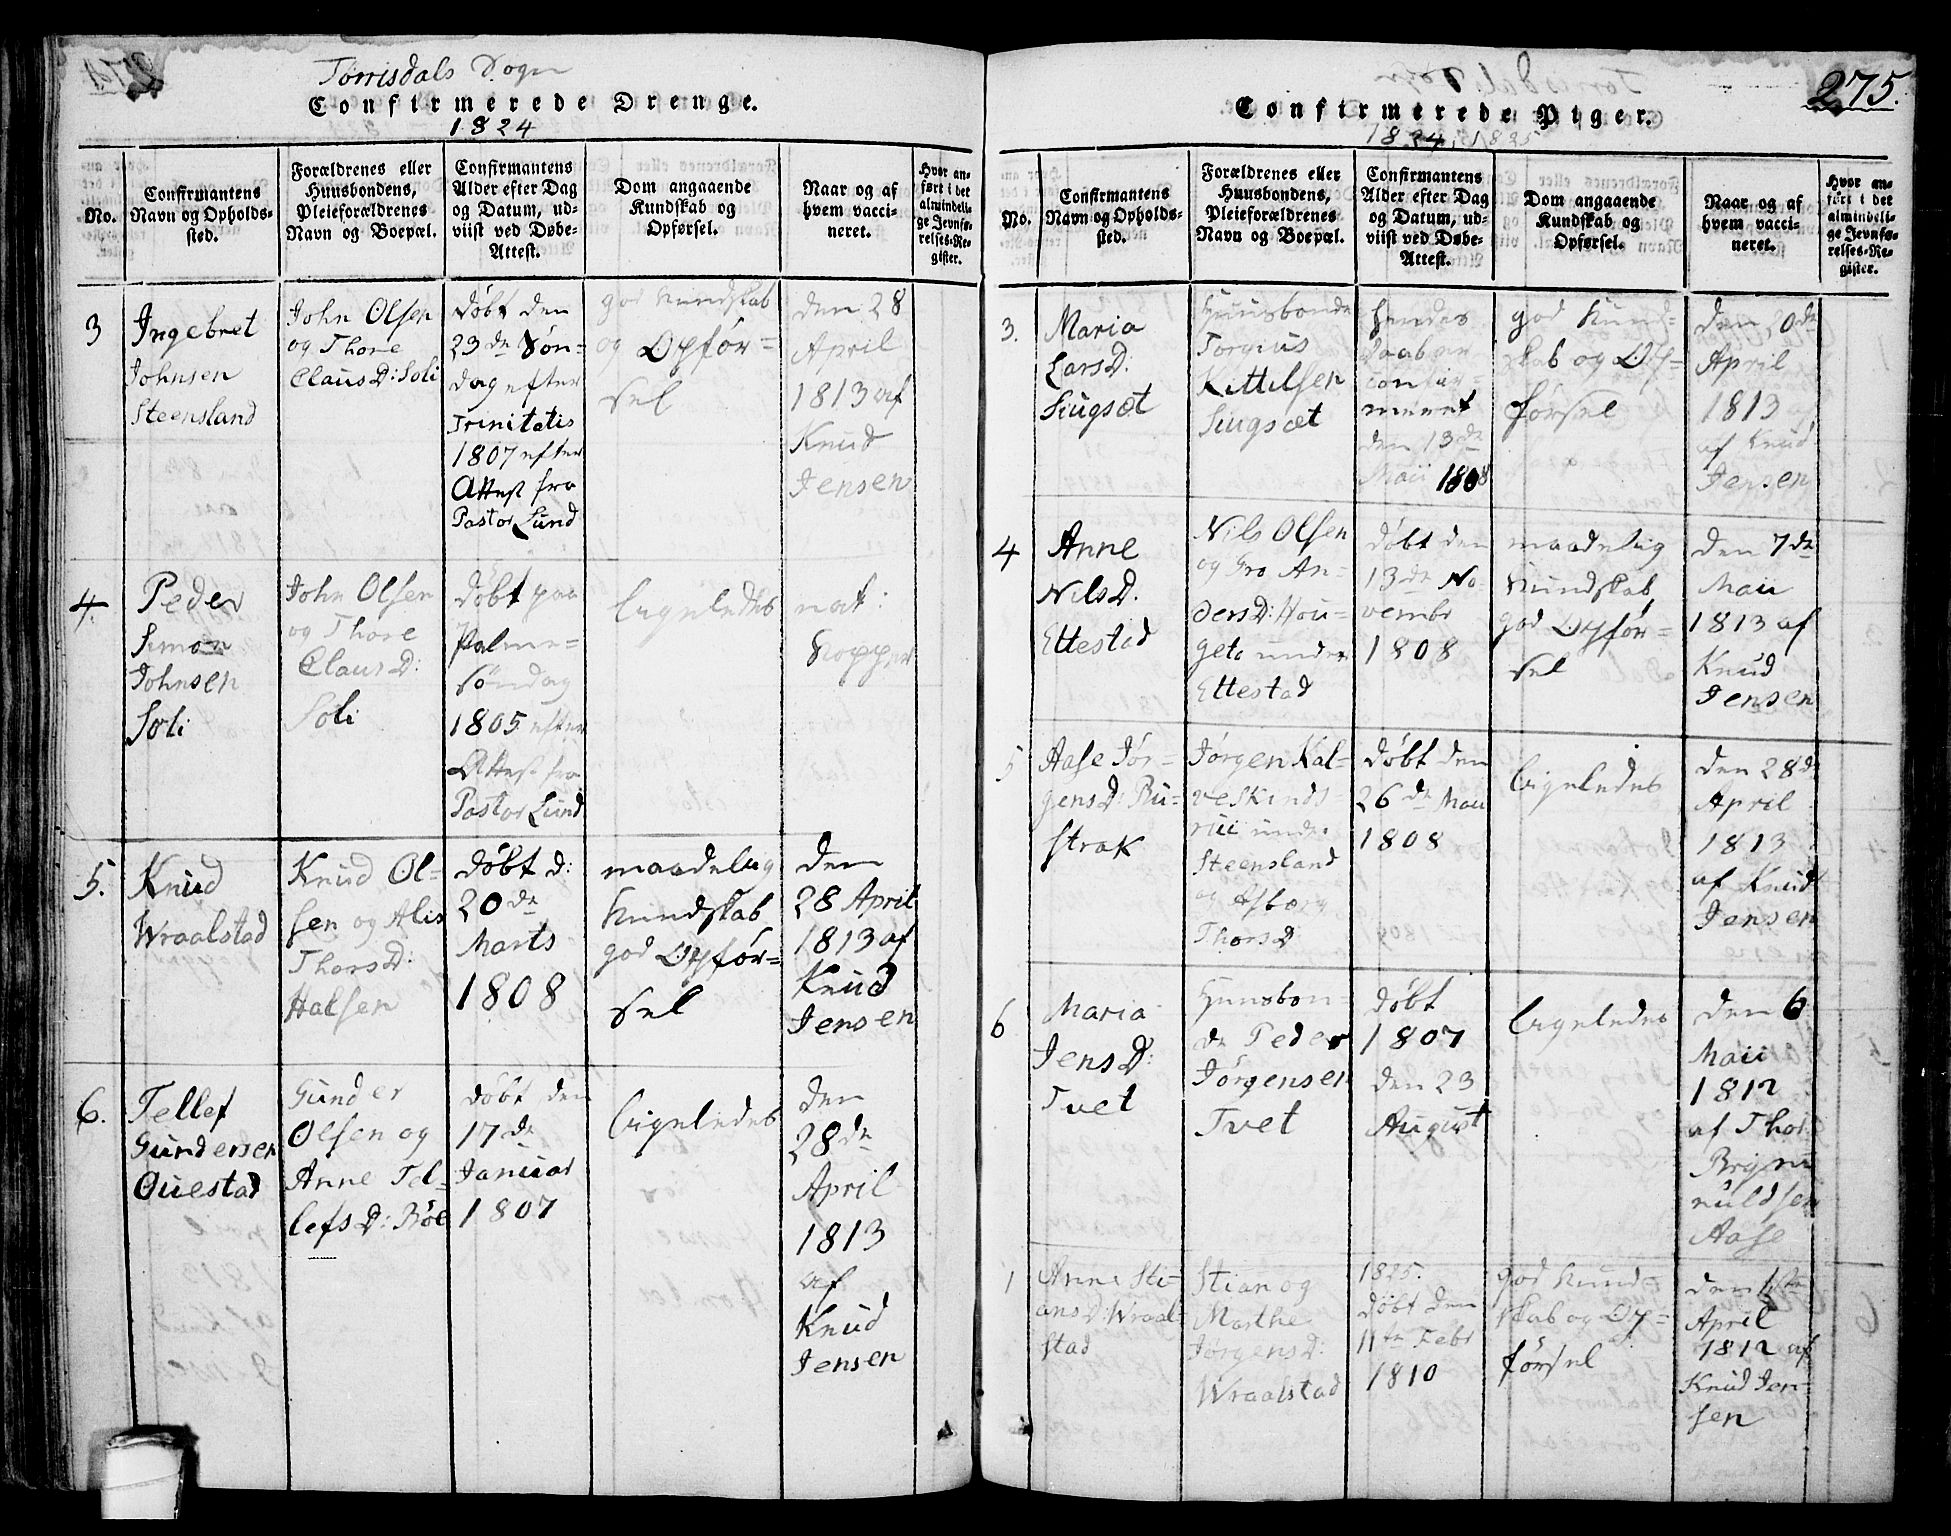 Tørrisdals Sogn
Confirmerede Drenge.
1824
No.
Confirmantens
Navn og Opholds-
sted.
Forældrenes eller
Huusbondens,
Pleieforældrenes
Navn og Boepæl.
Confirmantens
Alder efter Dag
og Datum, ud-
viist ved Døbe-
Attest.
Dom angaaende
Kundskab og
Opførsel.
Naar og af
hvem vacci-
neret.
Hvor an-
ført i det
almindeli-
ge Jevnfø-
relses-Re-
gister.
3
Ingebret
Johnsen
Steensland
John Olsen
og Thore
Claus D: Soli
Døbt den
23de Søn-
dag efter
Trinitatis
1807 efter
Attest fra
Pastor Lund
god Kundskab
og Opfør-
sel
den 28
April
1813 af
Knud
Jensen
4.
Peder
Simon
Johnsen
Soli
John Olsen
og Thore
Claus D:
Soli
Døbt paa
Palme-
søndag
1805 efter
Attest fra
Pastor Lund
ligeledes
nat:
Kopper
5.
Knud
Wraalstad
Knud Ol-
sen og Alis
Thors D:
Halsen
Døbt d:
20de
Marts
1808
maadelig
Kundskab
god Opfør-
sel
den
28 April
1813 af
Knud
Jensen
6.
Tellef
Gundersen
Ouestad
Gunder
Olsen og
Anne Tel-
lefs D: Röe
døbt den
17de
Januar
1807
ligeledes
den
28de
April
1813
af
Knud
Jensen
275.
Confirmerede Piger.
1824, 1825
No.
Confirmantens
Navn og Opholds-
sted.
Forældrenes eller
Huusbondens,
Pleieforældrenes
Navn og Boepæl.
Confirmantens
Alder efter Dag
og Datum, ud-
viist ved Døbe-
Attest.
Dom angaaende
Kundskab og
Opførsel.
Naar og af
hvem vacci-
neret.
Hvor an-
ført i det
almindeli-
ge Jevnfø-
relses-Re-
gister.
3.
Maria
Lars D:
Siugsæt
Huusbonde
Torgius
Kittilsen
Siugsæt
hendes
Daab er
confir-
meret
den 13de
Maii 1808
god Kund-
skab og Op-
førsel
den 20de
April
1813 af
af Knud
Jensen
4
Anne
Nils D.
Ettestad
Nils Olsen
og Gro An-
ders D: Hou-
geto under
Ettestad
døbt den
13de No-
vembr
1808
maadelig
Kundskab
god Opfør-
sel
den 7de
Maii
1813 af
Knud
Jensen
5
Aase Jør-
gens D: Ru-
strak
Jørgen Kal-
veskinds-
rii under
Steensland
og Asborg
Thors D
døbt den
26de Maii
1808
ligeledes
den 28de
April
1813
af Knud
Jensen
6
Maria
Jens D:
Tvet
Huusbon-
de Peder
Jørgensen
Tvet
døbt
1807
den 23
August
ligeledes
den 6
Maii
1812
af Thor
Aase
1
Anne Sti-
ans D: Wraal-
stad
Stian og
Marthe
Jørgens D:
Wraalstad
1825.
døbt den
11te Febr
1810
god Kund-
skab og Op-
førsel
den 1ste
April
1812 af
Knud Jen-
sen